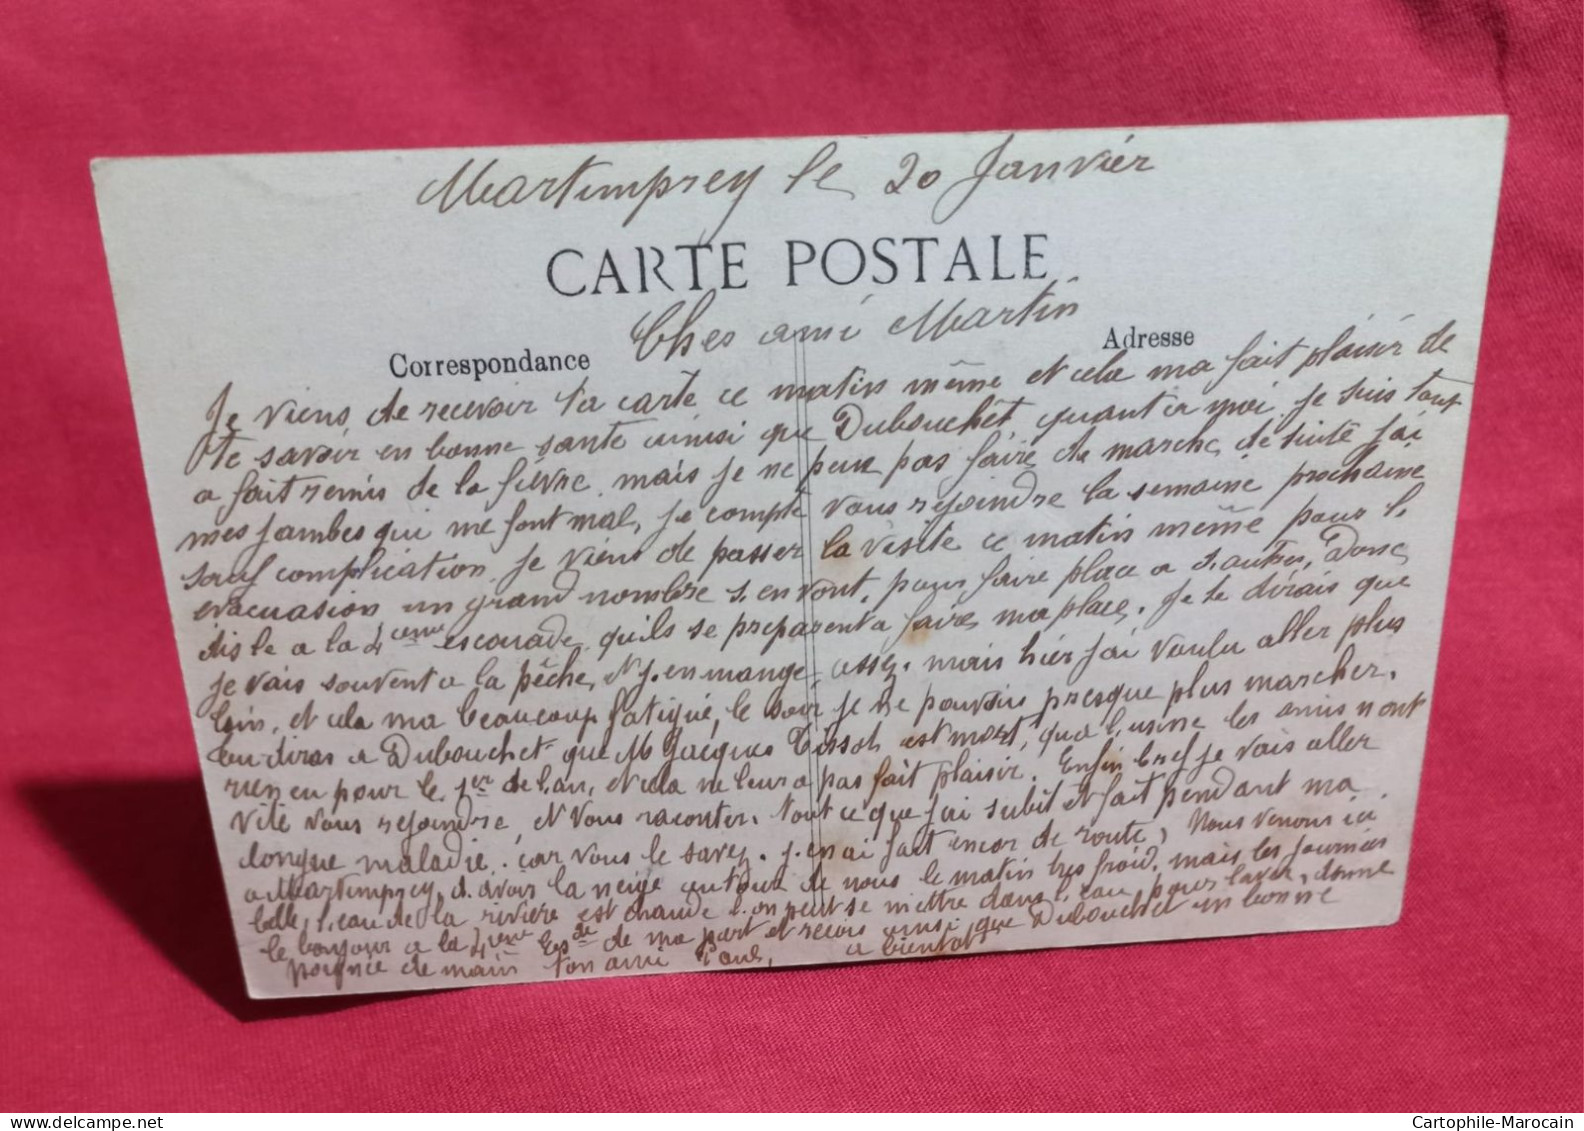 Martimprey le 20 Janvier
CARTE POSTALE
Cher ami Martin
Correspondance
Adresse
Je viens de recevoir ta carte ce matin même et cela ma fait plaisir de
te savoir en bonne santé ainsi que Dubouchet quant a moi je suis tout
a fait remis de la fièvre, mais je ne peux pas faire de marche de suite j'ai
mes jambes qui me font mal, je compte vous rejoindre la semaine prochaine
sauf complication, je viens de passer la visite ce matin même pour l.
evacuasion un grand nombre s.en vont, pour faire place a d.autres, Donc
dis le a la 4eme escouade quils se preparent a faire ma place. Je te dirais que
je vais souvent a la pêche, et j.en mange assez. mais hier j'ai voulu aller plus
loin, et cela ma beaucoup fatigué, le soir je ne pouvais presque plus marcher.
tu diras a Dubouchet que Mr Jacques Tissot est mort, qua l.usine les amis n ont
rien eu pour le 1er de l.an, et cela ne leur a pas fait plaisir. Enfin bref je vais aller
vite vous rejoindre, et vous raconter, tout ce que j'ai subit et fait pendant ma
longue maladie. car vous le savez. j.en ai fait encor de route, Nous venons ici
a Martimprey, d.avoir la neige autour de nous le matin tres froid, mais les journées
belle, l.eau de la rivière est chaude l.on peut se mettre dans l.eau, pour laver, donne
le bonjour a la 4eme Esde de ma part et recois ainsi que Dubouchet un bonne
poignée de main ton ami Paul, a bientot
Cartophile-Marocain